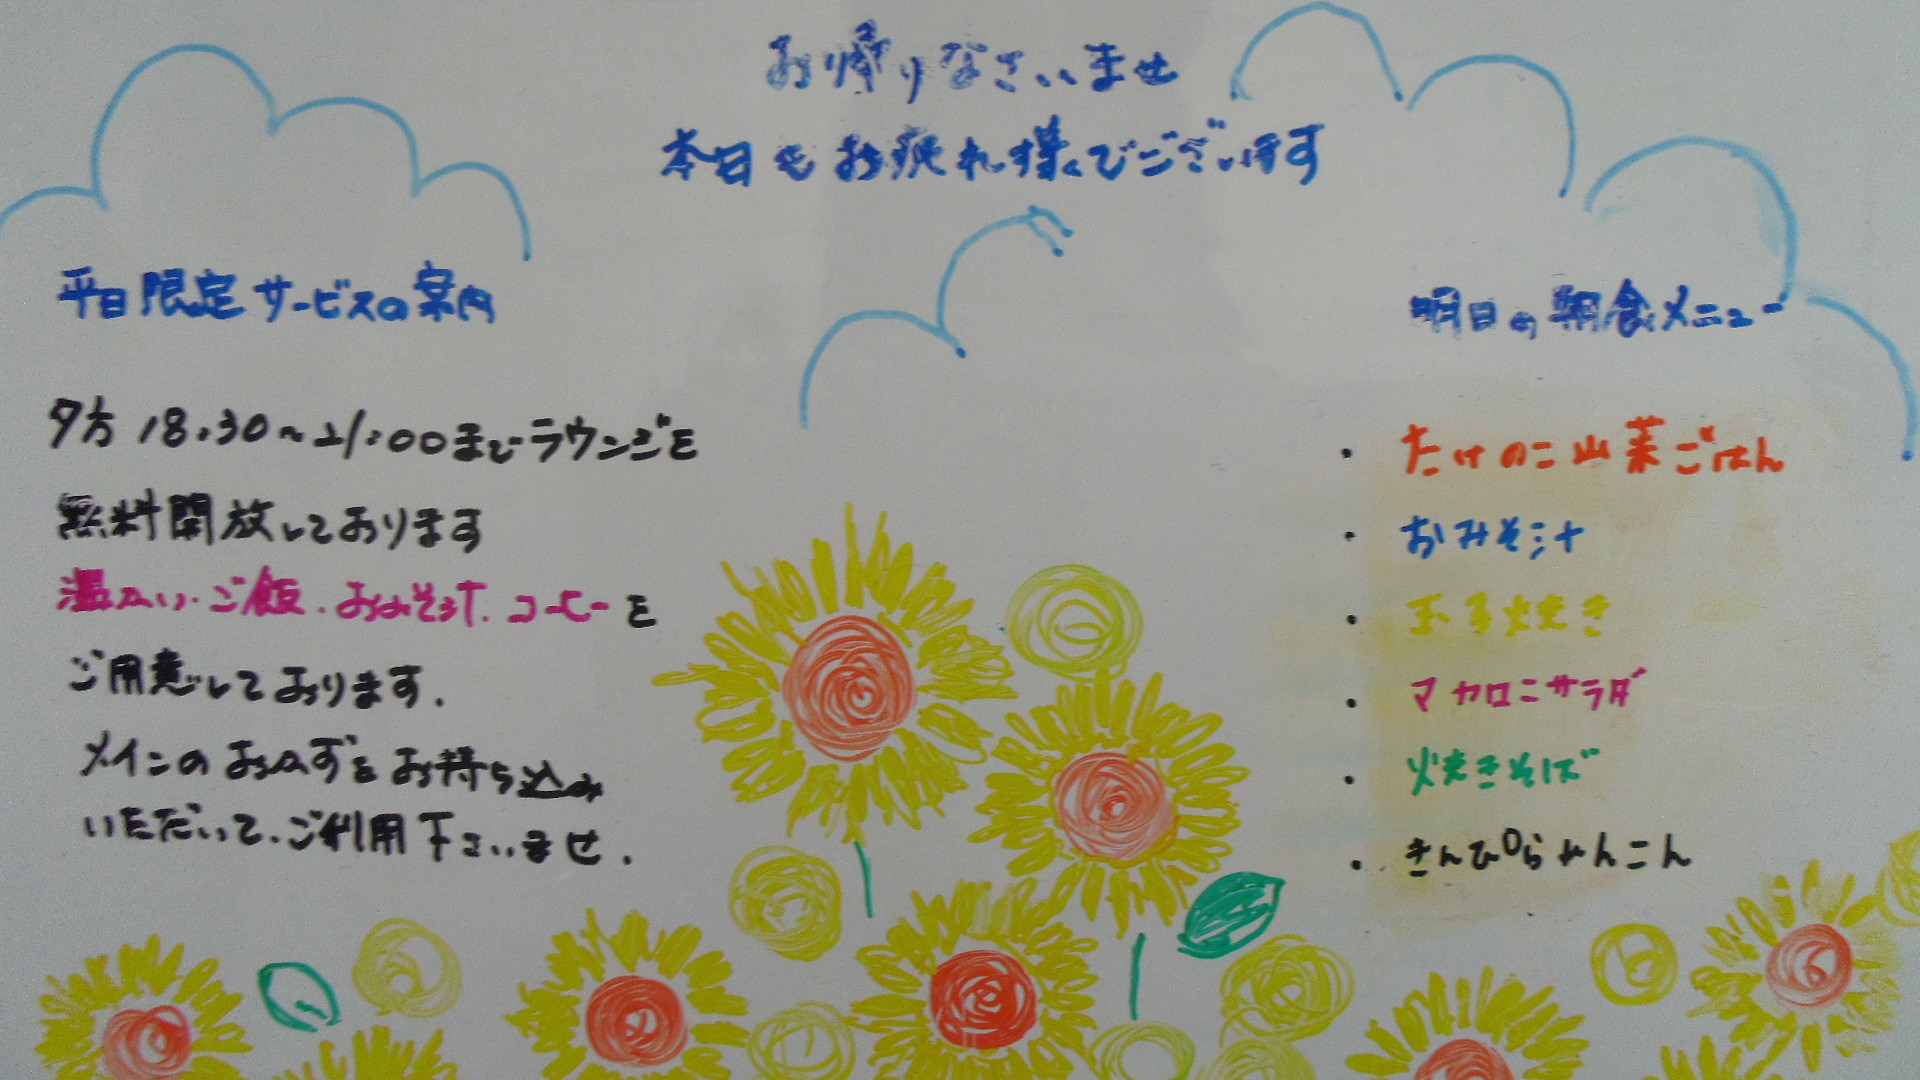 お帰りなさいませ
本日もお疲れ様でございます
平日限定サービスの案内
夕方 18:30~21:00までラウンジを
無料開放しております
温かい、ご飯、おみそ汁、コーヒーを
ご用意しております.
メインのおかずをお持ち込み
いただいて、ご利用下さいませ.
明日の朝食メニュー
・たけのこ山菜ごはん
・おみそ汁
・玉子焼き
・マカロニサラダ
・焼きそば
・きんぴられんこん